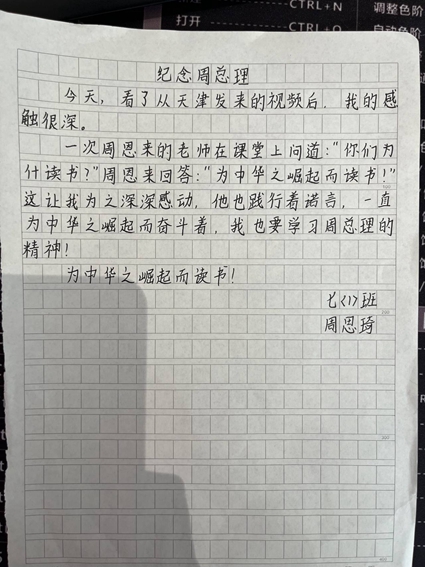 CTRL+N
调整色阶
打开
CTRL+O
自动色阶
纪念周总理
今天，看了从天津发来的视频后，我的感
触很深。
一次周恩来的老师在课堂上问道："你们为
什读书？"周恩来回答："为中华之崛起而读书！"
这让我为之深深感动，他也践行着诺言，一直
为中华之崛起而奋斗着，我也要学习周总理的
精神！
为中华之崛起而读书！
七<1>班
周思琦